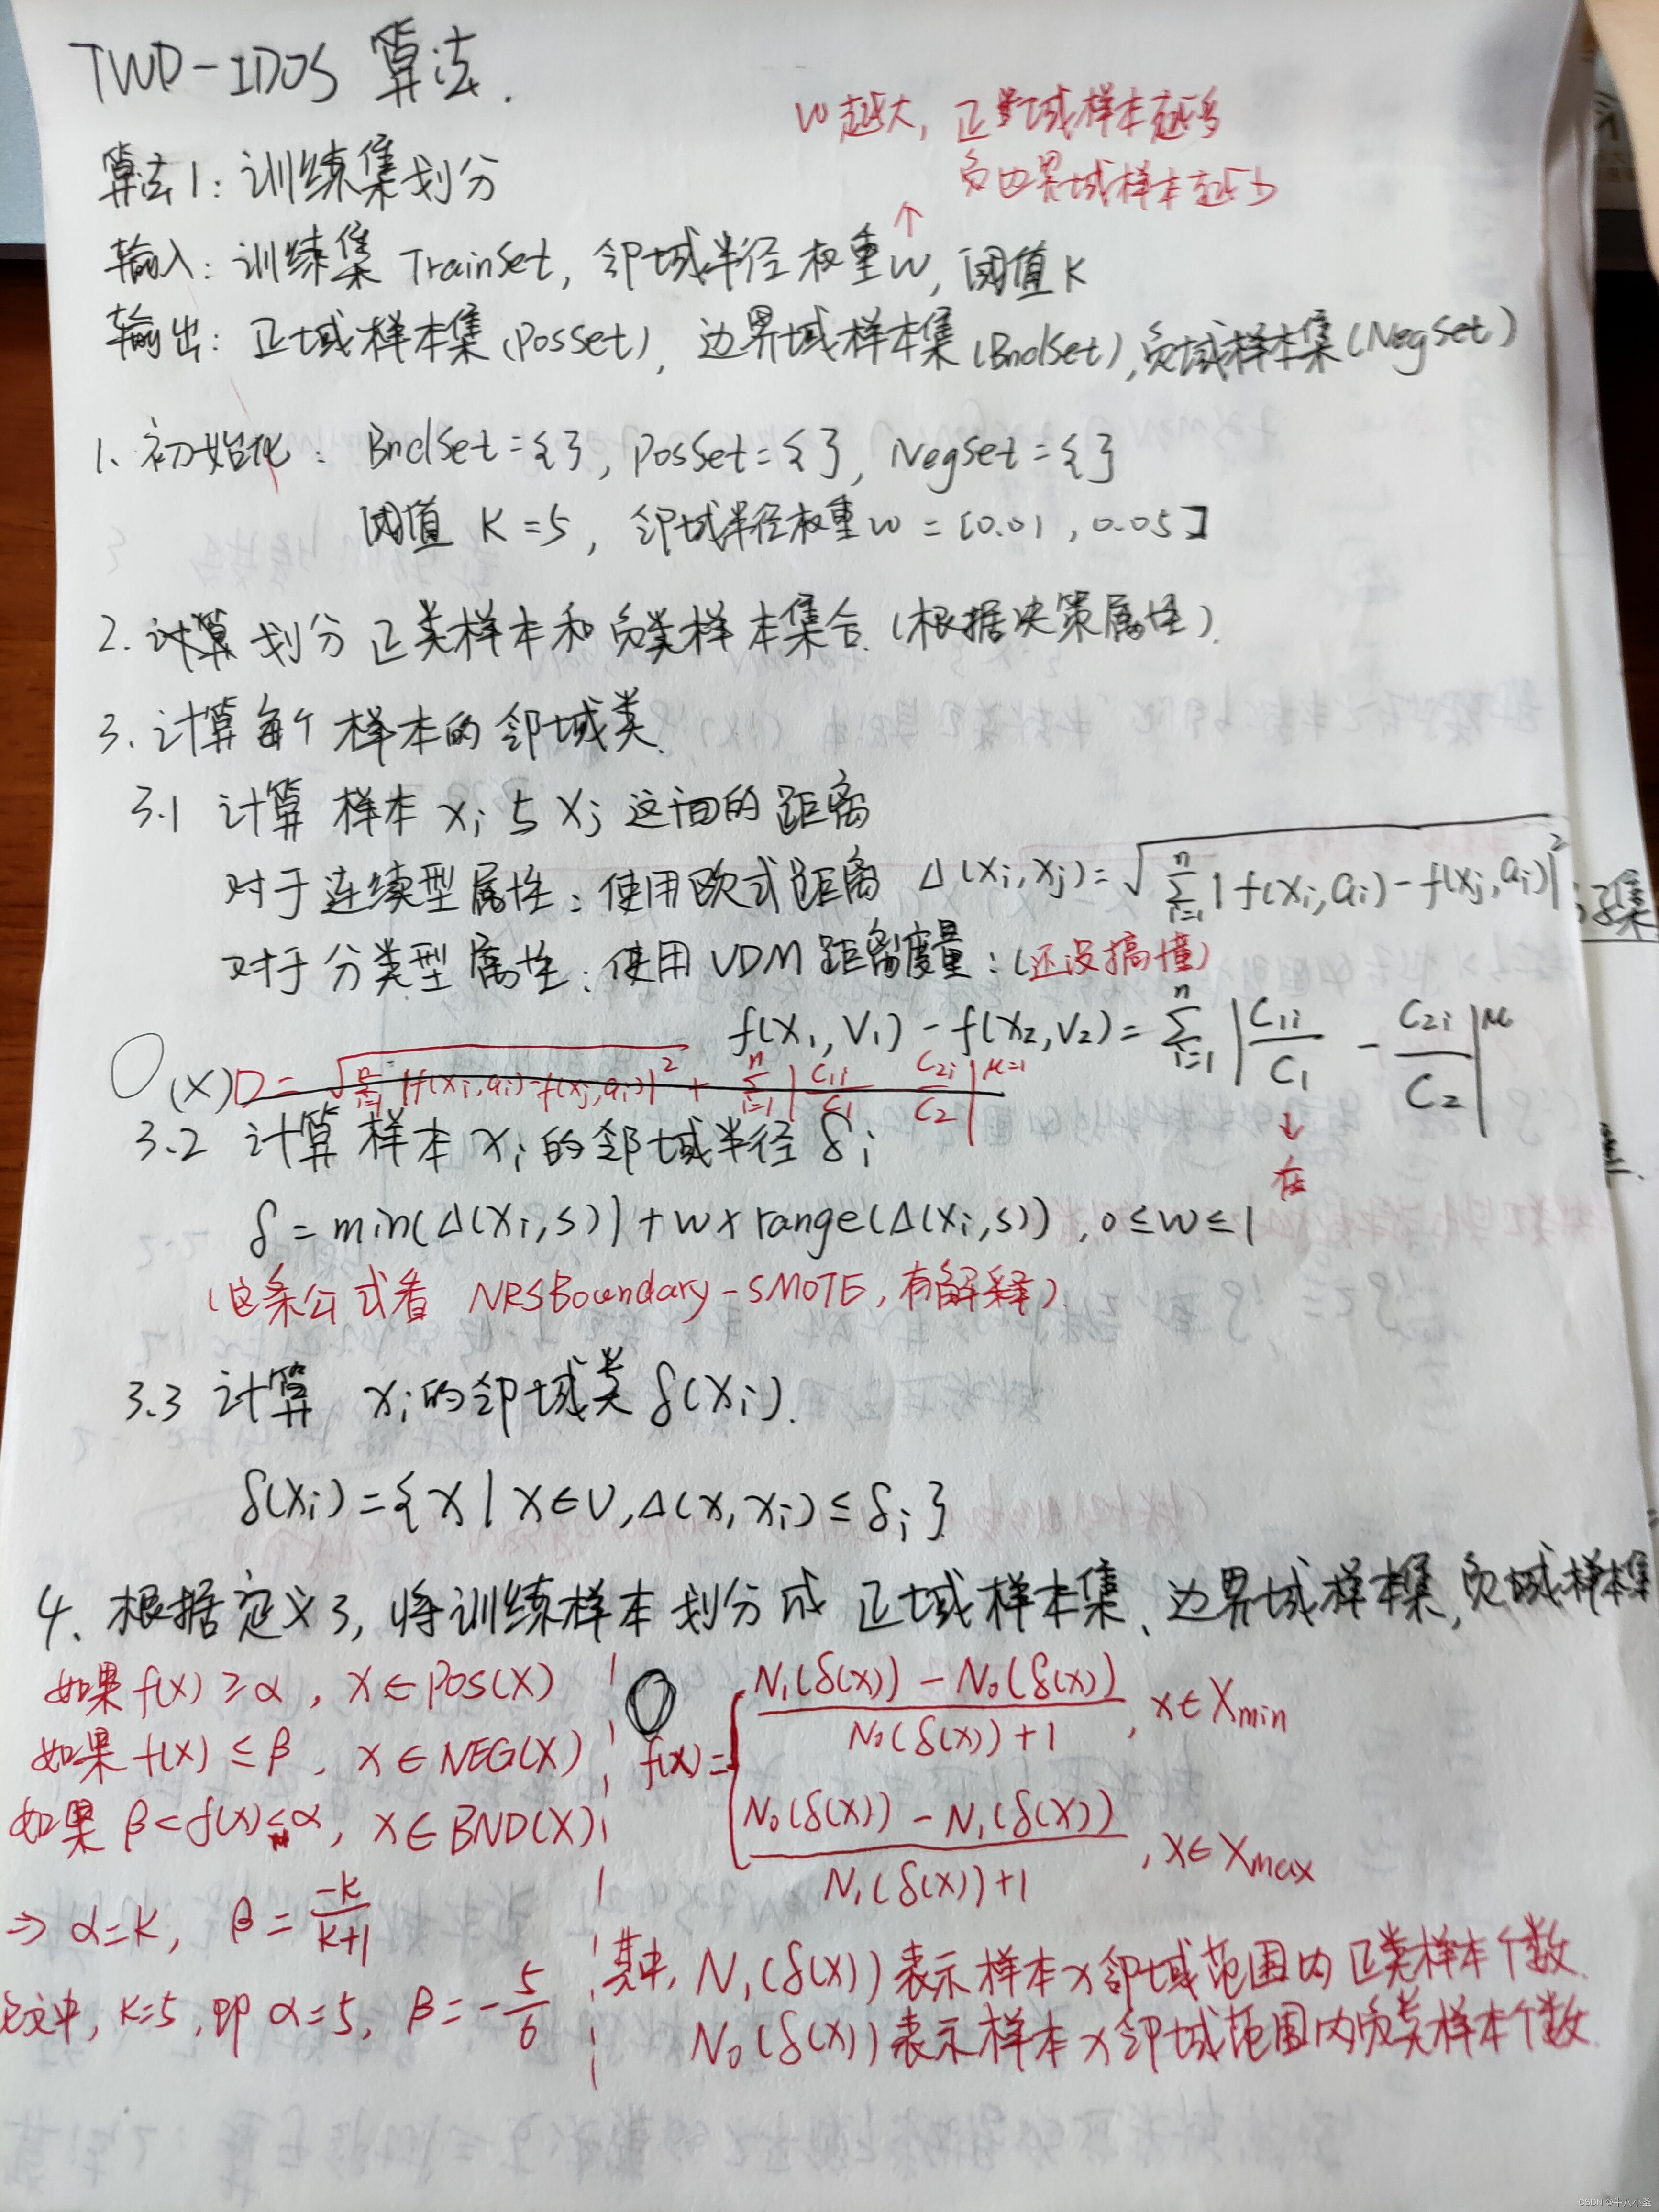 TWD-IDOS 算法.
w越大, 正域样本越多
负边界域样本越少
↑
算法1: 训练集划分
输入: 训练集 TrainSet, 邻域半径权重w, 阈值K
输出: 正域样本集(PosSet), 边界域样本集(BndSet), 负域样本集(NegSet)
1、初始化: BndSet={}, PosSet={}, NegSet={}
阈值 K=5, 邻域半径权重w=[0.01, 0.05]
2. 划分正类样本和负类样本集合.(根据决策属性).
3. 计算每个样本的邻域类.
3.1 计算样本 xi 与 xj 这间的距离
对于连续型属性: 使用欧式距离 Δ(xi,xj)=√∑ⁿᵢ₌₁|f(xi,ai)-f(xj,ai)|²
子集
对于分类型属性: 使用VDM距离度量: (还没搞懂)
f(x1,V1)-f(x2,V2)=∑ⁿᵢ₌₁|C1i/C1 - C2i/C2|^μ
(x) D=√∑ⁿᵢ₌₁|f(xi,ai)-f(xj,ai)|² + ∑ⁿᵢ₌₁|C1i/C1 C2i/C2|^μ=1
↓
3.2 计算样本 xi 的邻域半径 δi
δ=min(Δ(xi,s))+w×range(Δ(xi,s)), 0≤w≤1
(这条公式看 NRSBoundary-SMOTE, 有解释)
3.3 计算 xi的邻域类 δ(xi).
δ(xi)={x|x∈U,Δ(x,xi)≤δi}
4、根据定义3, 将训练样本划分成 正域样本集、边界域样本集, 负域样本集
如果 f(x)≥α, x∈POS(X)
如果 f(x)≤β, x∈NEG(X)
如果 β<f(x)≤α, x∈BND(X)
⇒ α=K, β=-K/K+1
文中, K=5, 即 α=5, β=-5/6
f(x)={ N1(δ(x))-N0(δ(x))/N0(δ(x))+1, x∈Xmin
N0(δ(x))-N1(δ(x))/N1(δ(x))+1, x∈Xmax
其中, N1(δ(x))表示样本x邻域范围内正类样本个数.
N0(δ(x))表示样本x邻域范围内负类样本个数.
CSDN @牛八小圣